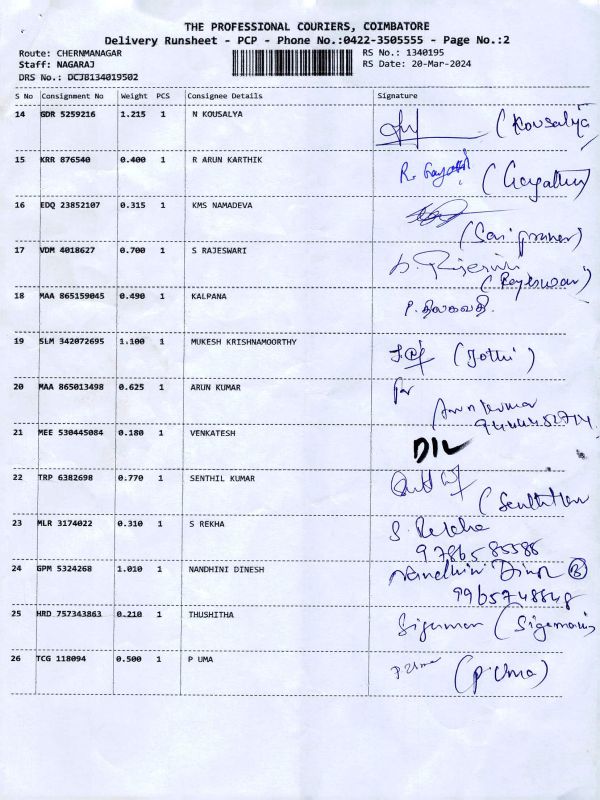 THE PROFESSIONAL COURIERS, COIMBATORE
Delivery Runsheet - PCP - Phone No.:0422-3505555 - Page No.:2
Route: CHERNMANAGAR RS No.: 1340195
Staff: NAGARAJ RS Date: 20-Mar-2024
DRS No.: DCJ8134019502
S No Consignment No Weight PCS Consignee Details Signature
14 GDR 5259216 1.215 1 N KOUSALYA (Kousalya)
15 KRR 876540 0.400 1 R ARUN KARTHIK R. Gayathri (Gayathri)
16 EDQ 23852107 0.315 1 KMS NAMADEVA
17 VDM 4018627 0.700 1 S RAJESWARI (Rajeswari)
18 MAA 865159045 0.490 1 KALPANA P. திலகவதி.
19 SLM 342072695 1.100 1 MUKESH KRISHNAMOORTHY (Jothi)
20 MAA 865013498 0.625 1 ARUN KUMAR Arun kumar
21 MEE 530445084 0.180 1 VENKATESH DIL
22 TRP 6382698 0.770 1 SENTHIL KUMAR
23 MLR 3174022 0.310 1 S REKHA S. Rekha
9786585586
24 GPM 5324268 1.010 1 NANDHINI DINESH Nandhini Dinesh
9965748848
25 HRD 757343863 0.210 1 THUSHITHA
26 TCG 118094 0.500 1 P UMA P Uma (P. Uma)